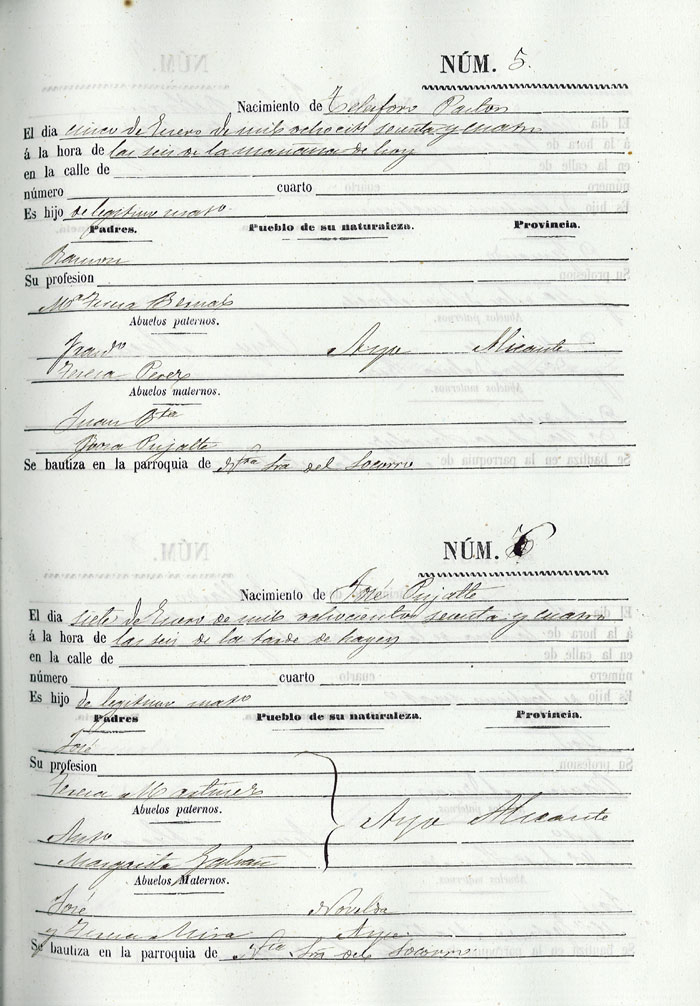 NÚM. 5.
Nacimiento de Telesforo Pavlon
El dia cinco de Enero de mil ochocits sesenta y cuatro
á la hora de las seis de la mañana de hoy
en la calle de
número cuarto
Es hijo de legitimo mato
Padres. Pueblo de su naturaleza. Provincia.
Ramon
Su profesion
Ma Teresa Bernal
Abuelos paternos.
Franco Aspe Alicante
Teresa Perez
Abuelos maternos.
Juan Bta
Rosa Pujalte
Se bautiza en la parroquia de Ntra Sra del Socorro
NÚM. 6
Nacimiento de José Pujalte
El dia siete de Enero de mil ochocientos sesenta y cuatro
á la hora de las seis de la tarde de hayer
en la calle de
número cuarto
Es hijo de legitimo mato
Padres Pueblo de su naturaleza. Provincia.
José
Su profesion
Teresa Martinez
Abuelos paternos.
Anto Aspe Alicante
Margarita Galvañ
Abuelos Maternos.
José Novelda
y Teresa Mira Aspe
Se bautiza en la parroquia de Ntra Sra del Socorro